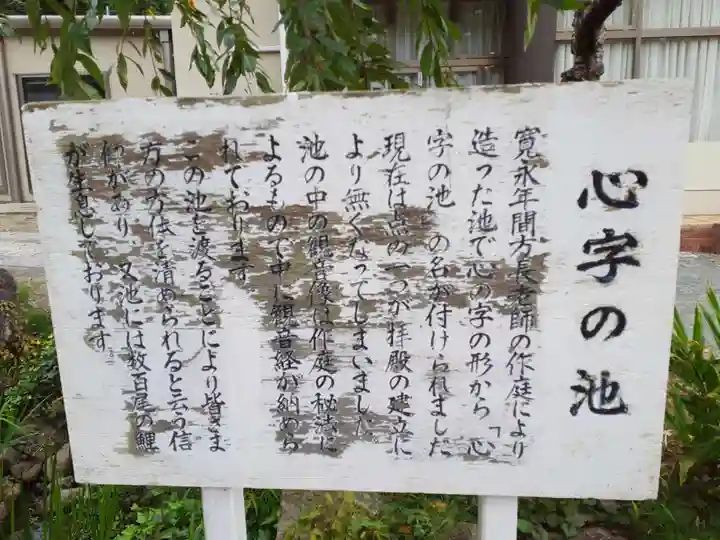 心字の池
寛永年間方長老師の作庭により
造った池で心の字の形から「心
字の池」の名が付けられました
現在は点の一つが拝殿の建立に
より無くなってしまいました
池の中の観音像は作庭の秘法に
よるもので中に観音経が納めら
れております
この池を渡ることにより皆さま
方の身体を清められると云う信
仰があり、又池には数百尾の鯉
が生息しております。